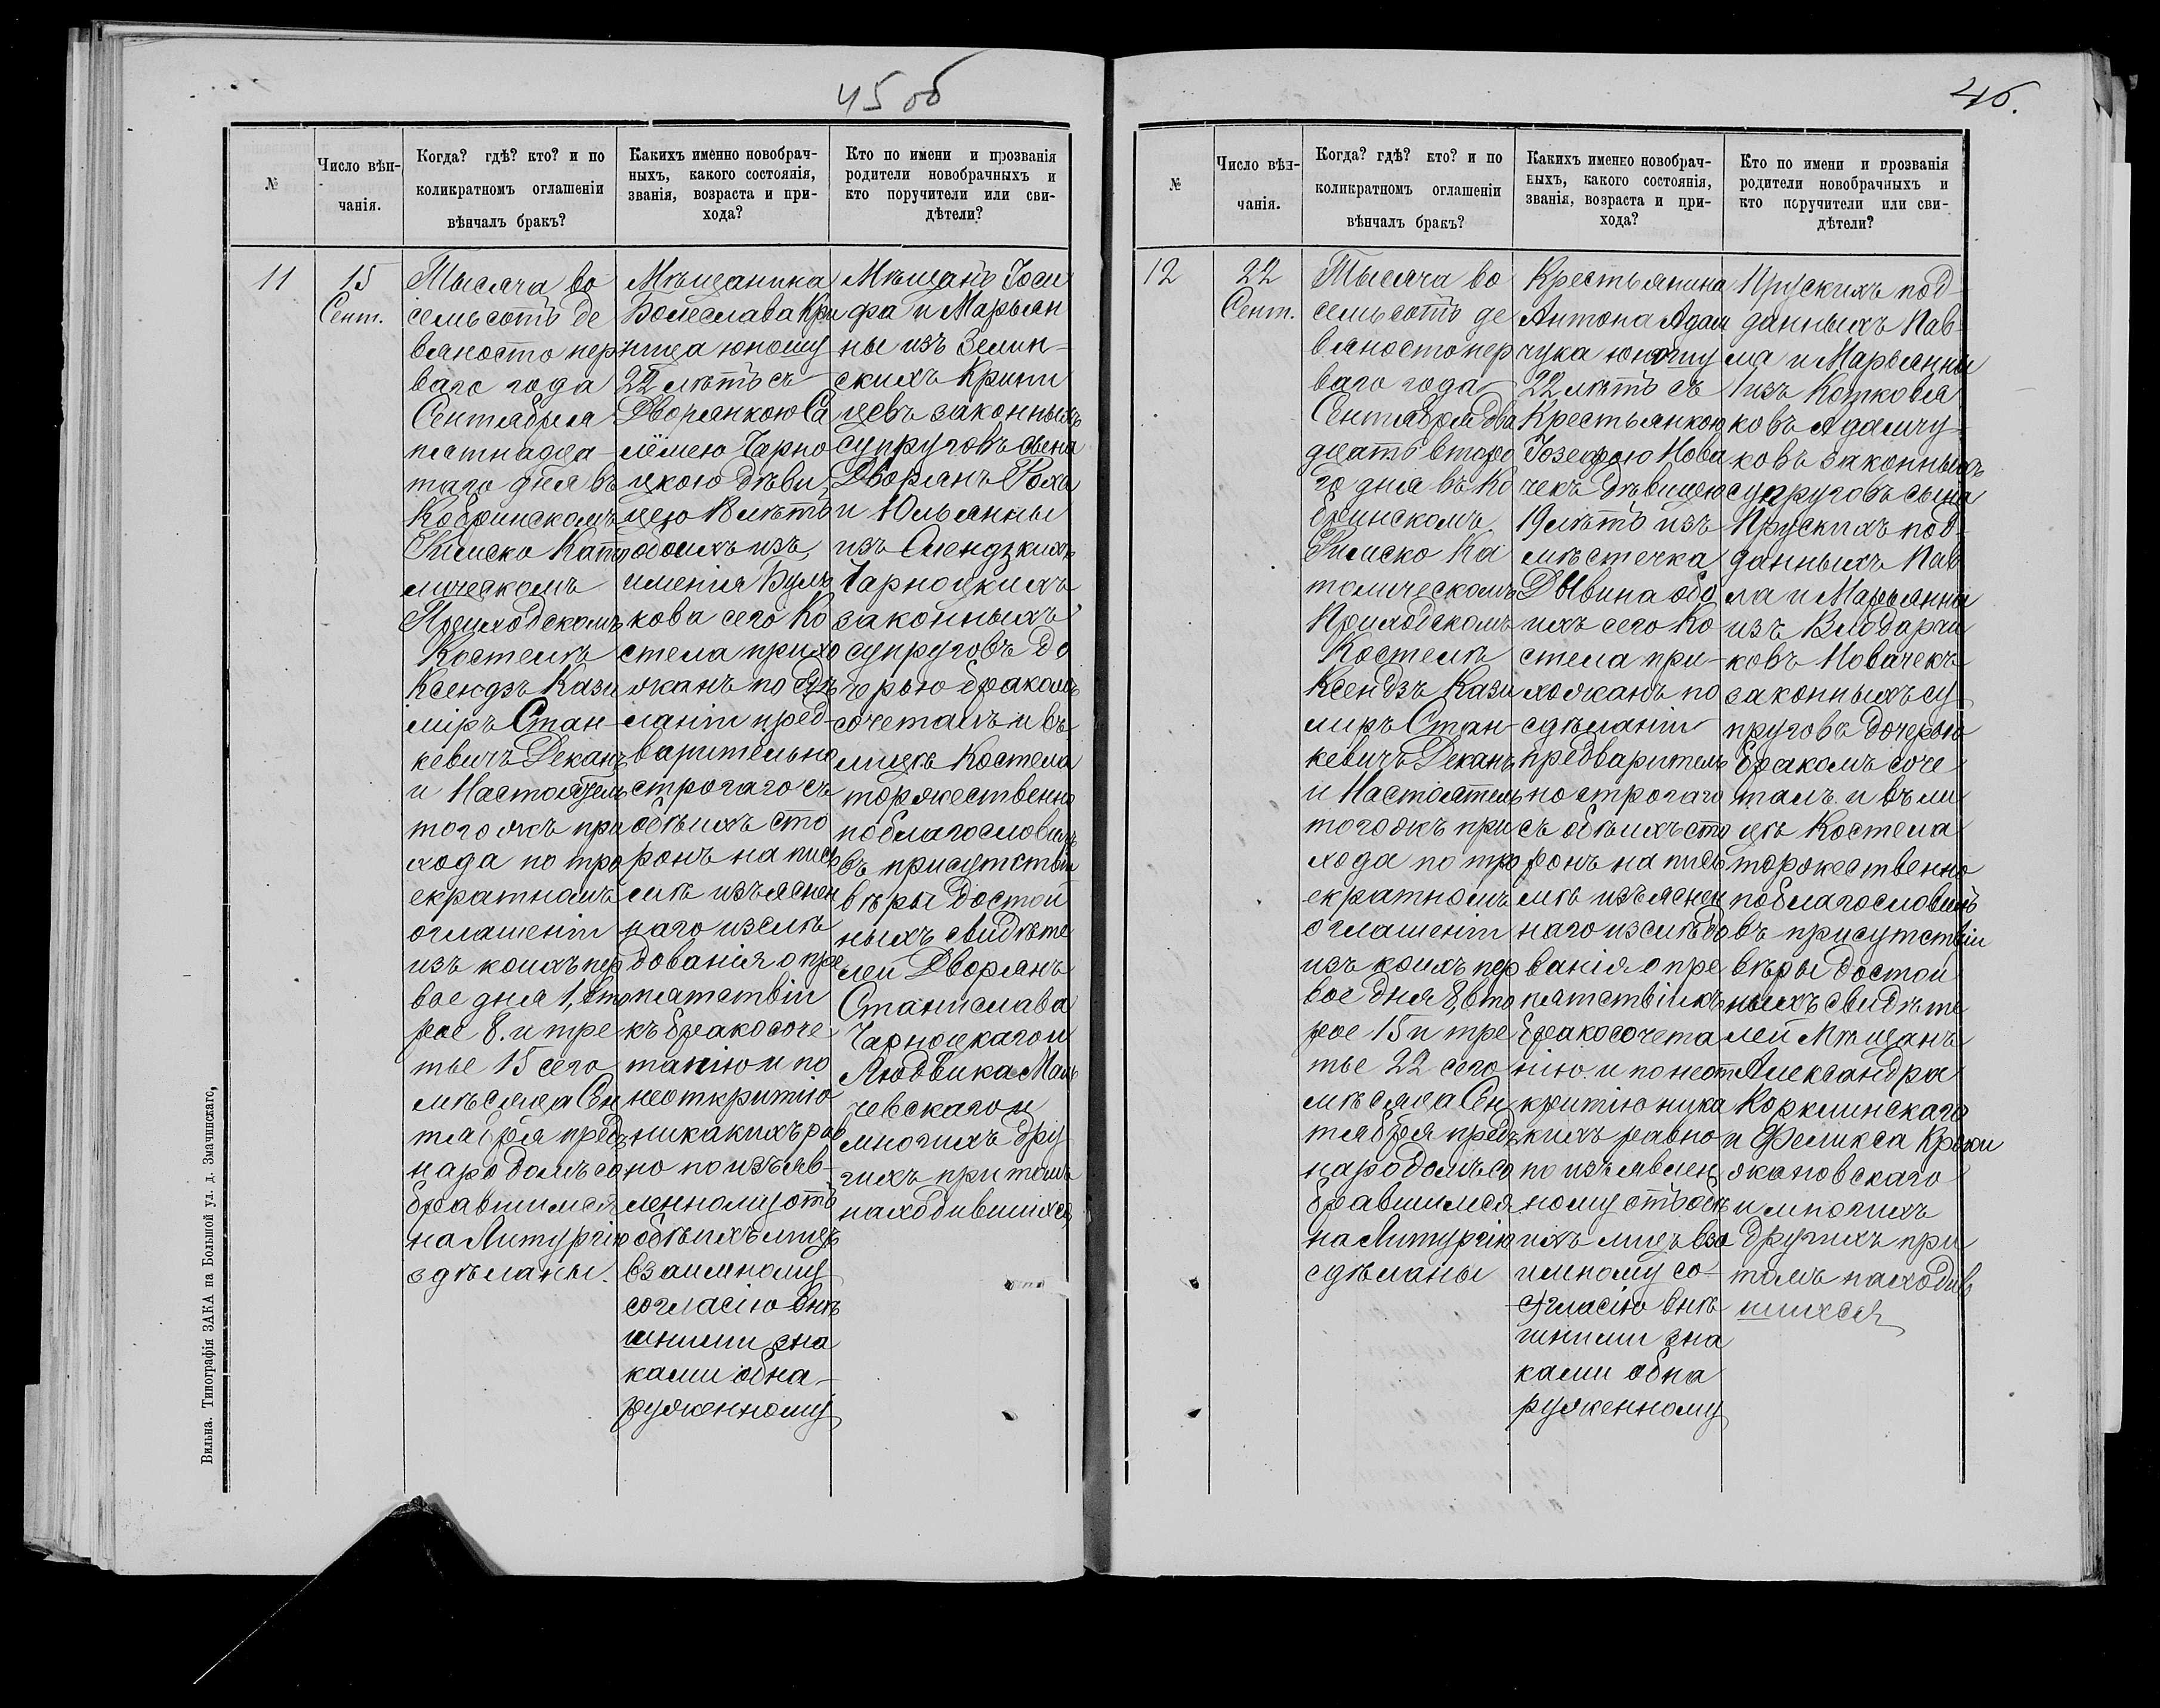 45 об
№
Число вѣн-
чанія.
Когда? гдѣ? кто? и по
коликратномъ оглашеніи
вѣнчалъ бракъ?
Какихъ именно новобрач-
ныхъ, какого состоянія,
званія, возраста и при-
хода?
Кто по имени и прозванія
родители новобрачныхъ и
кто поручители или сви-
дѣтели?
11
15
Сент.
Тысяча во
семьсотъ де
вяносто пер
ваго года
Сентября
пятнадца-
таго дня въ
Кобринскомъ
Римско Като
лическомъ
Приходскомъ
Костелѣ
Ксендзъ Кази
міръ Стан-
кевичъ Деканъ
и Настоятель
того жъ при
хода по тро
екратномъ
оглашеніи
изъ коихъ пер
вое дня 1, вто
рое 8. и тре
тье 15 сего
мѣсяца Сен
тября предъ
народомъ со
бравшимся
на Литургію
здѣланы.
Мѣщанина
Болеслава Кри
ница юношу
22 лѣтъ съ
Дворянкою Са
лёмею Чарно
цкою дѣви
цею 18 лѣтъ
обоихъ изъ
именія Буль
кова сего Ко
стела прихо
жанъ по здѣ
ланіи пред-
варительно
строгаго съ
обѣихъ сто
ронъ на пись
мѣ изъяснен
наго изслѣ
дованія о пре
пятствіи
къ бракосоче
танію и по
неоткритію
никакихъ рав
но по изъяв-
ленному отъ
обѣихъ лицъ
взаимному
согласію внѣ
шними зна
ками обна-
руженному
Мѣщанъ Іоси
фа и Марьян
ны изъ Зелин-
скихъ Крини
цевъ законныхъ
супруговъ сына
Дворянъ Роха
и Юльянны
изъ Слендзкихъ
Чарноцкихъ
законныхъ
супруговъ до
черью бракомъ
сочеталъ и въ
лицѣ Костела
торжественно
поблагословилъ
въ присутствіи
вѣры достой
ныхъ свидѣте
лей Дворянъ
Станислава
Чарноцкаго и
Людвика Маль
чевскаго и
многихъ дру
гихъ при томъ
находившихся,
Вильна. Типографія ЗАКА на Большой ул. д. Змачинскаго,
46.
№
Число вѣн-
чанія.
Когда? гдѣ? кто? и по
коликратномъ оглашеніи
вѣнчалъ бракъ?
Какихъ именно новобрач-
ныхъ, какого состоянія,
званія, возраста и при-
хода?
Кто по имени и прозванія
родители новобрачныхъ и
кто поручители или сви-
дѣтели?
12
22
Сент.
Тысяча во
семьсотъ де
вяносто пер
ваго года
Сентября два
дцать второ
го дня въ Ко
бринскомъ
Римско Ка
толическомъ
Приходскомъ
Костелѣ
Ксендзъ Кази
миръ Стан-
кевичъ Деканъ
и Настоятель
того жъ при
хода по тро
екратномъ
оглашеніи
изъ коихъ пер
вое дня 8, вто
рое 15 и тре
тье 22 сего
мѣсяца Сен
тября предъ
народомъ со
бравшимся
на Литургію
сдѣланы
Крестьянина
Антона Адам
чука юношу
22 лѣтъ съ
Крестьянкою
Іозефою Нова
чекъ дѣвицею
19 лѣтъ изъ
мѣстечка
Дывина обо
ихъ сего Ко
стела при-
хожанъ по
сдѣланіи
предваритель
но строгаго
съ обѣихъ сто
ронъ на пись
мѣ изъяснен
наго изслѣдо
ванія о пре
пятствіи къ
бракосочета
нію и по неот
критію ника
кихъ равно
по изъявлен
ному отъ обѣ
ихъ лицъ вза
имному со-
гласію внѣ
шними зна
ками обна
руженному
Прускихъ под-
данныхъ Пав-
ла и Марьянны
изъ Котковя
ковъ Адамчу-
ковъ законныхъ
супруговъ сына
Прускихъ под-
данныхъ Пав
ла и Марьянны
изъ Влодарчи
ковъ Новачекъ
законныхъ су
пруговъ дочерью
бракомъ соче
талъ и въ ли
цѣ Костела
торжественно
поблагословилъ
въ присутствіи
вѣры достой
ныхъ свидѣте
лей Мѣщанъ
Александра
Корклинскаго
и Феликса Крыжи
жановскаго
и многихъ
другихъ при
томъ находив
шихся